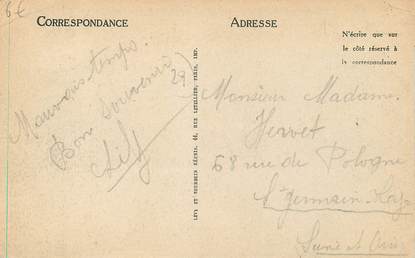 6€
CORRESPONDANCE
ADRESSE
N'écrire que sur
le côté réservé à
la correspondance
Mauvais temps.
Bon souvenir
Lily
LÉVY ET NEURDEIN RÉUNIS, 44, RUE LETELLIER, PARIS, IMP.
Monsieur Madame
Hervet
58 rue de Pologne
St Germain-Laye
Seine et Oise